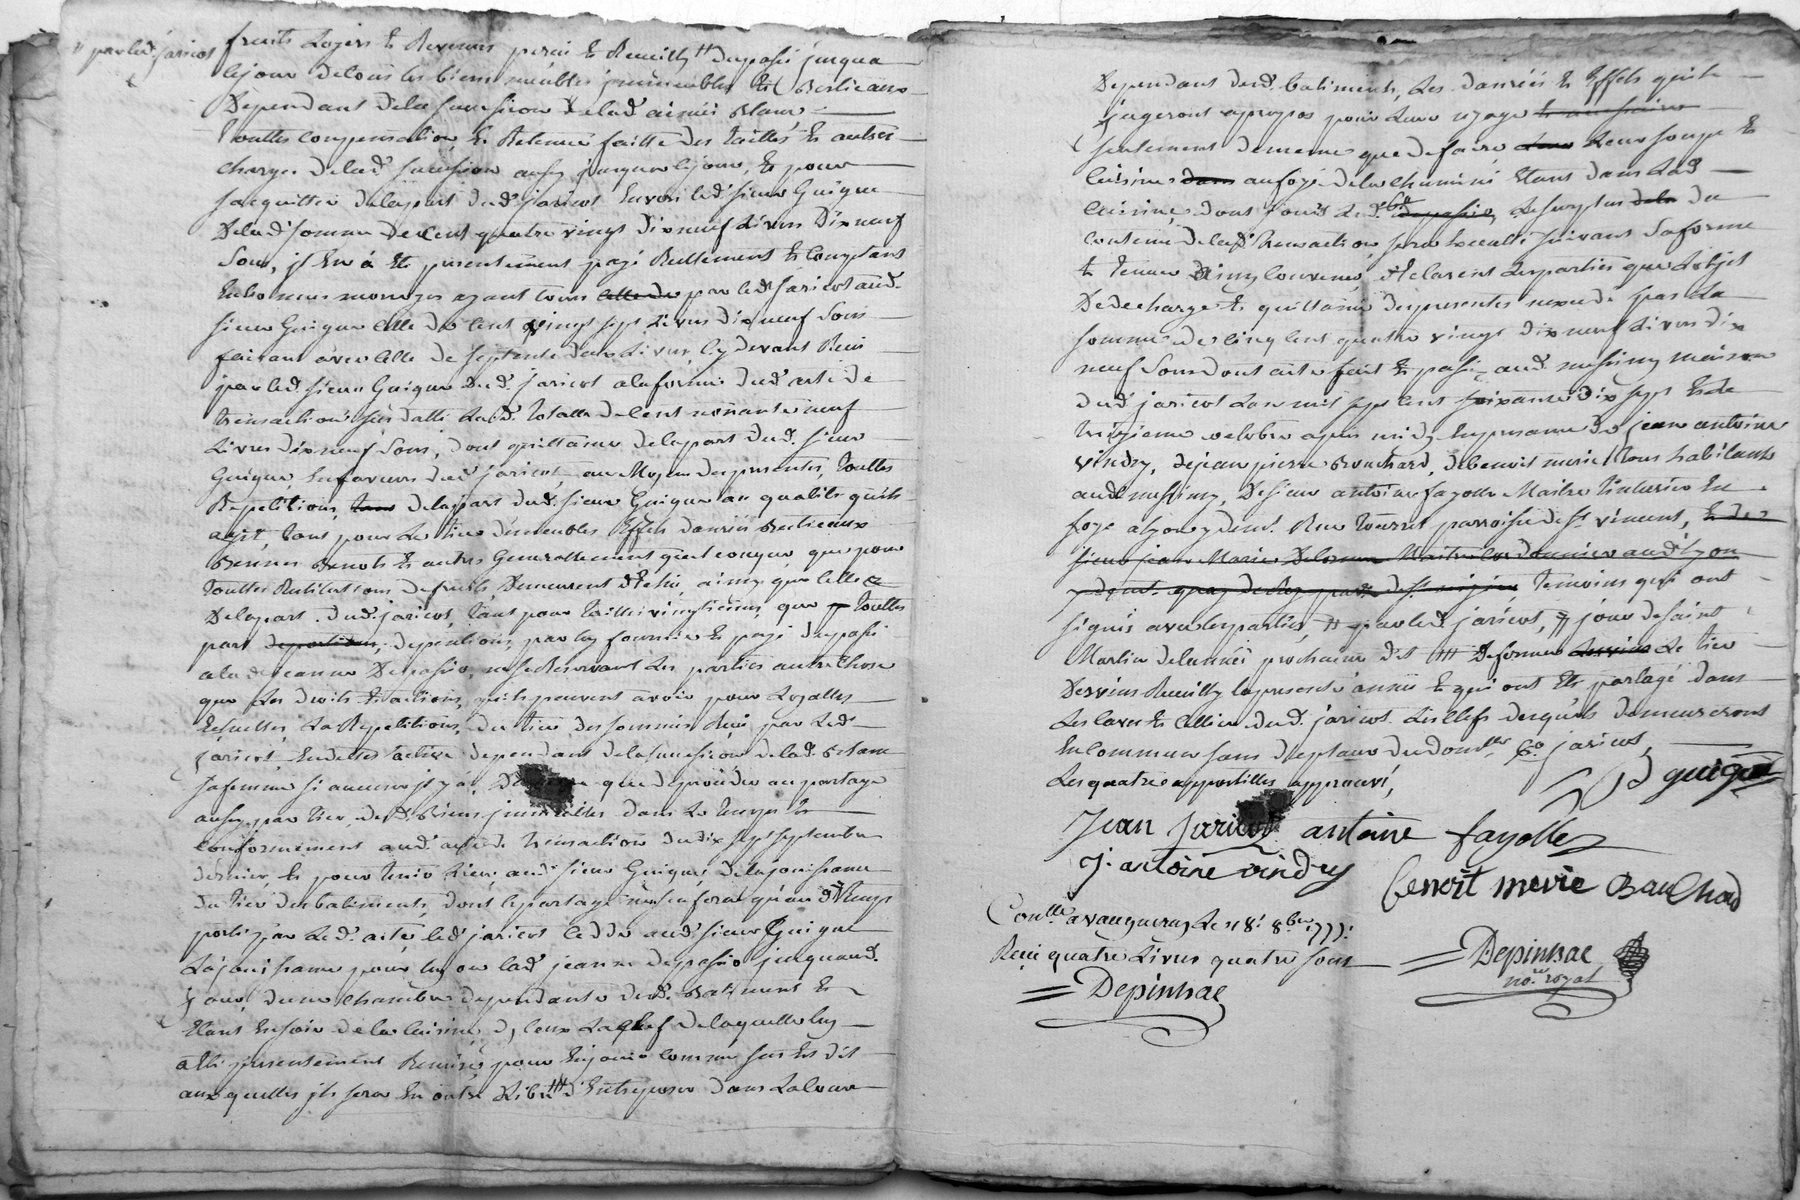 // par led. jaricot
fruits Loyers & Revenus percu & Reeuilly # depassé jusqua
lejour detous les biens meubles jmmeubles & Bestieaux
Dependant dela succession delad. aimée Blanc
toutes compensation, & Retenue faitte des tailles & autres
charges delad. succession aussy jusqua lejour, & pour
sacquitter delapart dud. jaricot Envers led. sieur Guigue
Delad. somme decent quatre vingt dixneuf Livres Dixneuf
Sous, jl En à Eté presentement payé Reellement & Comptant
En bonnes monoyes ayant cours par led. jaricot aud.
sieur Guigue Celle de Cent vingt sept Livres dix neuf Sous
faisant avec Celle de septente deux Livres cy devant Recu
par led. sieur Guigue dud. jaricot alaforme dud. acte de
transaction sus datté Lad. totalle decent nonante neuf
Livres dixneuf Sous, dont quittance delapart dud. sieur
Guigue, Enfaveur dud. jaricot, au Moyen despresentes, toutes
Repetitions, delapart dud. sieur Guigue en qualité quil
agit, tant pour Le tiers des meubles Effets danrées Bestieaux
& autres Generallement quelconque, que pour
touttes Restitutions defruits, Demeurent Eteints, ainsy que celles
Delapart dud. jaricot, tant pour taille vingtiemes, que toutes
part Reparations, par luy fournies & payé depassé
alad. jeanne Depassio, nese Reservant Les parties autre chose
que Les droits & actions, quils peuvent avoir pour Loyalles
Esquelles, La Repetitions, du tiers des sommes Recu par Led.
jaricot, Endettes active dependant dela succession delad. Blanc
safemme si aucune jl y à, que deproceder aupartage
aussy par tiers, desd. Biens jmmeubles dans Le temps &
Conformement aud. acte de transaction du dix sept septembre
dernier, & pour tenir Lieu, aud. sieur Guigue, delajouissance
du tiers desbatiments, dont Lepartage nesefera qu'au tems
porté par Led. acte, led. jaricot cedde aud. sieur Guigue
Lajouissance pour luy ou lad. jeanne depassio jusquaud.
jour, dune chambre dependante desd. Batiment &
Etant Ensoir dela Cuisine, Laclef delaquelle luy
a Eté presentement Remise, pour Enjouir comme sus Est dit
auxquelles jls sera En outre Libre d'Entreposer dans Lacour
Dependant desd. batiments, Les danrées & Effets quils
jugeront apropos pour Leur usage
seulement dememe que defaire Leur soupe &
Cuisine aufoyé dela cheminé Etant dans Lad.
Cuisine, dont jouit Led. Lesurplus du
contenu delad. transaction, sera Executé suivant Saforme
& teneur Ainsy Convenu, declarent Lesparties que Lobjet
Dedecharge & quittance despresentes nexcede pas La
somme de cinq cent quatre vingt dix neuf Livres dix
neuf Sous dont acte fait & passé aud. messimy maison
dud. jaricot Lan mil sept cent soixante dix sept & Le
treizieme octobre apres midy Enpresence de jean antoine
vindry, dejean pierre Bouchard, debenoit merie tous habitants
aud. messimy, Desieur antoine fayolle Maitre tinturier En
soye a Lyon y demt. Rue tourret parroisse de St. vincent, & de
sieur jean Marie Delorme Maitre Cordonnier aud. Lyon
y demt. quay temoins qui ont
signés avec lesparties, # par led. jaricot, # jour de saint
Martin delannée prochaine dit ### deforme Le tiers
Desvins Reeuilly lapresente année & qui ont Eté partagé dans
Les caves & Cellier dud. jaricot Les Clefs desquels demeureront
Encommun sans
jaricot,
Les quatre appostilles approuvé,
guigue
Jean jaricot antoine fayolle
j. antoine vindry
benoit merie Bauchad
Conllé a vaugneray Le 18. 8bre 1777.
Recu quatre Livres quatre sous
= Depinhac
= Depinhac
nore. royal